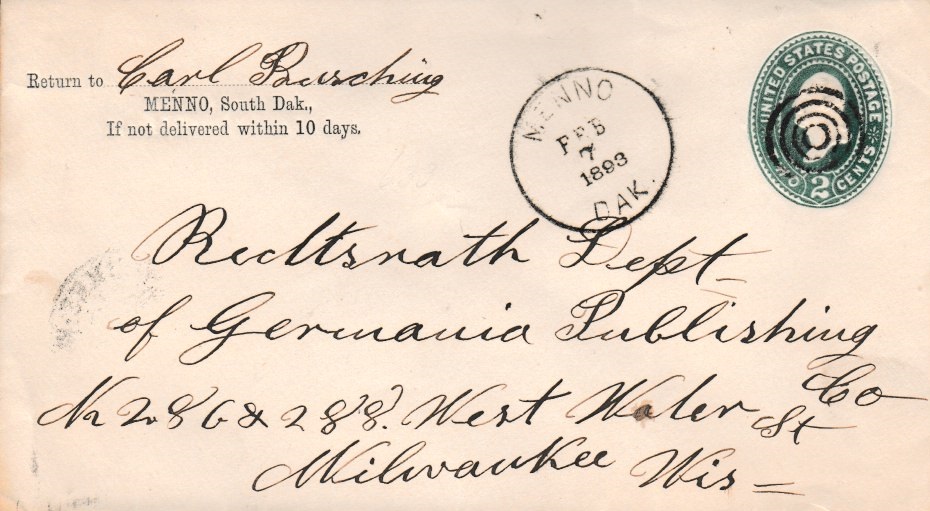 Return to Carl Busching
MENNO, South Dak.,
If not delivered within 10 days.
MENNO
FEB
7
1893
DAK.
UNITED STATES POSTAGE
TWO 2 CENTS
Rechtsrath Dept
of Germania Publishing Co
No 286 & 288. West Water St
Milwaukee Wis